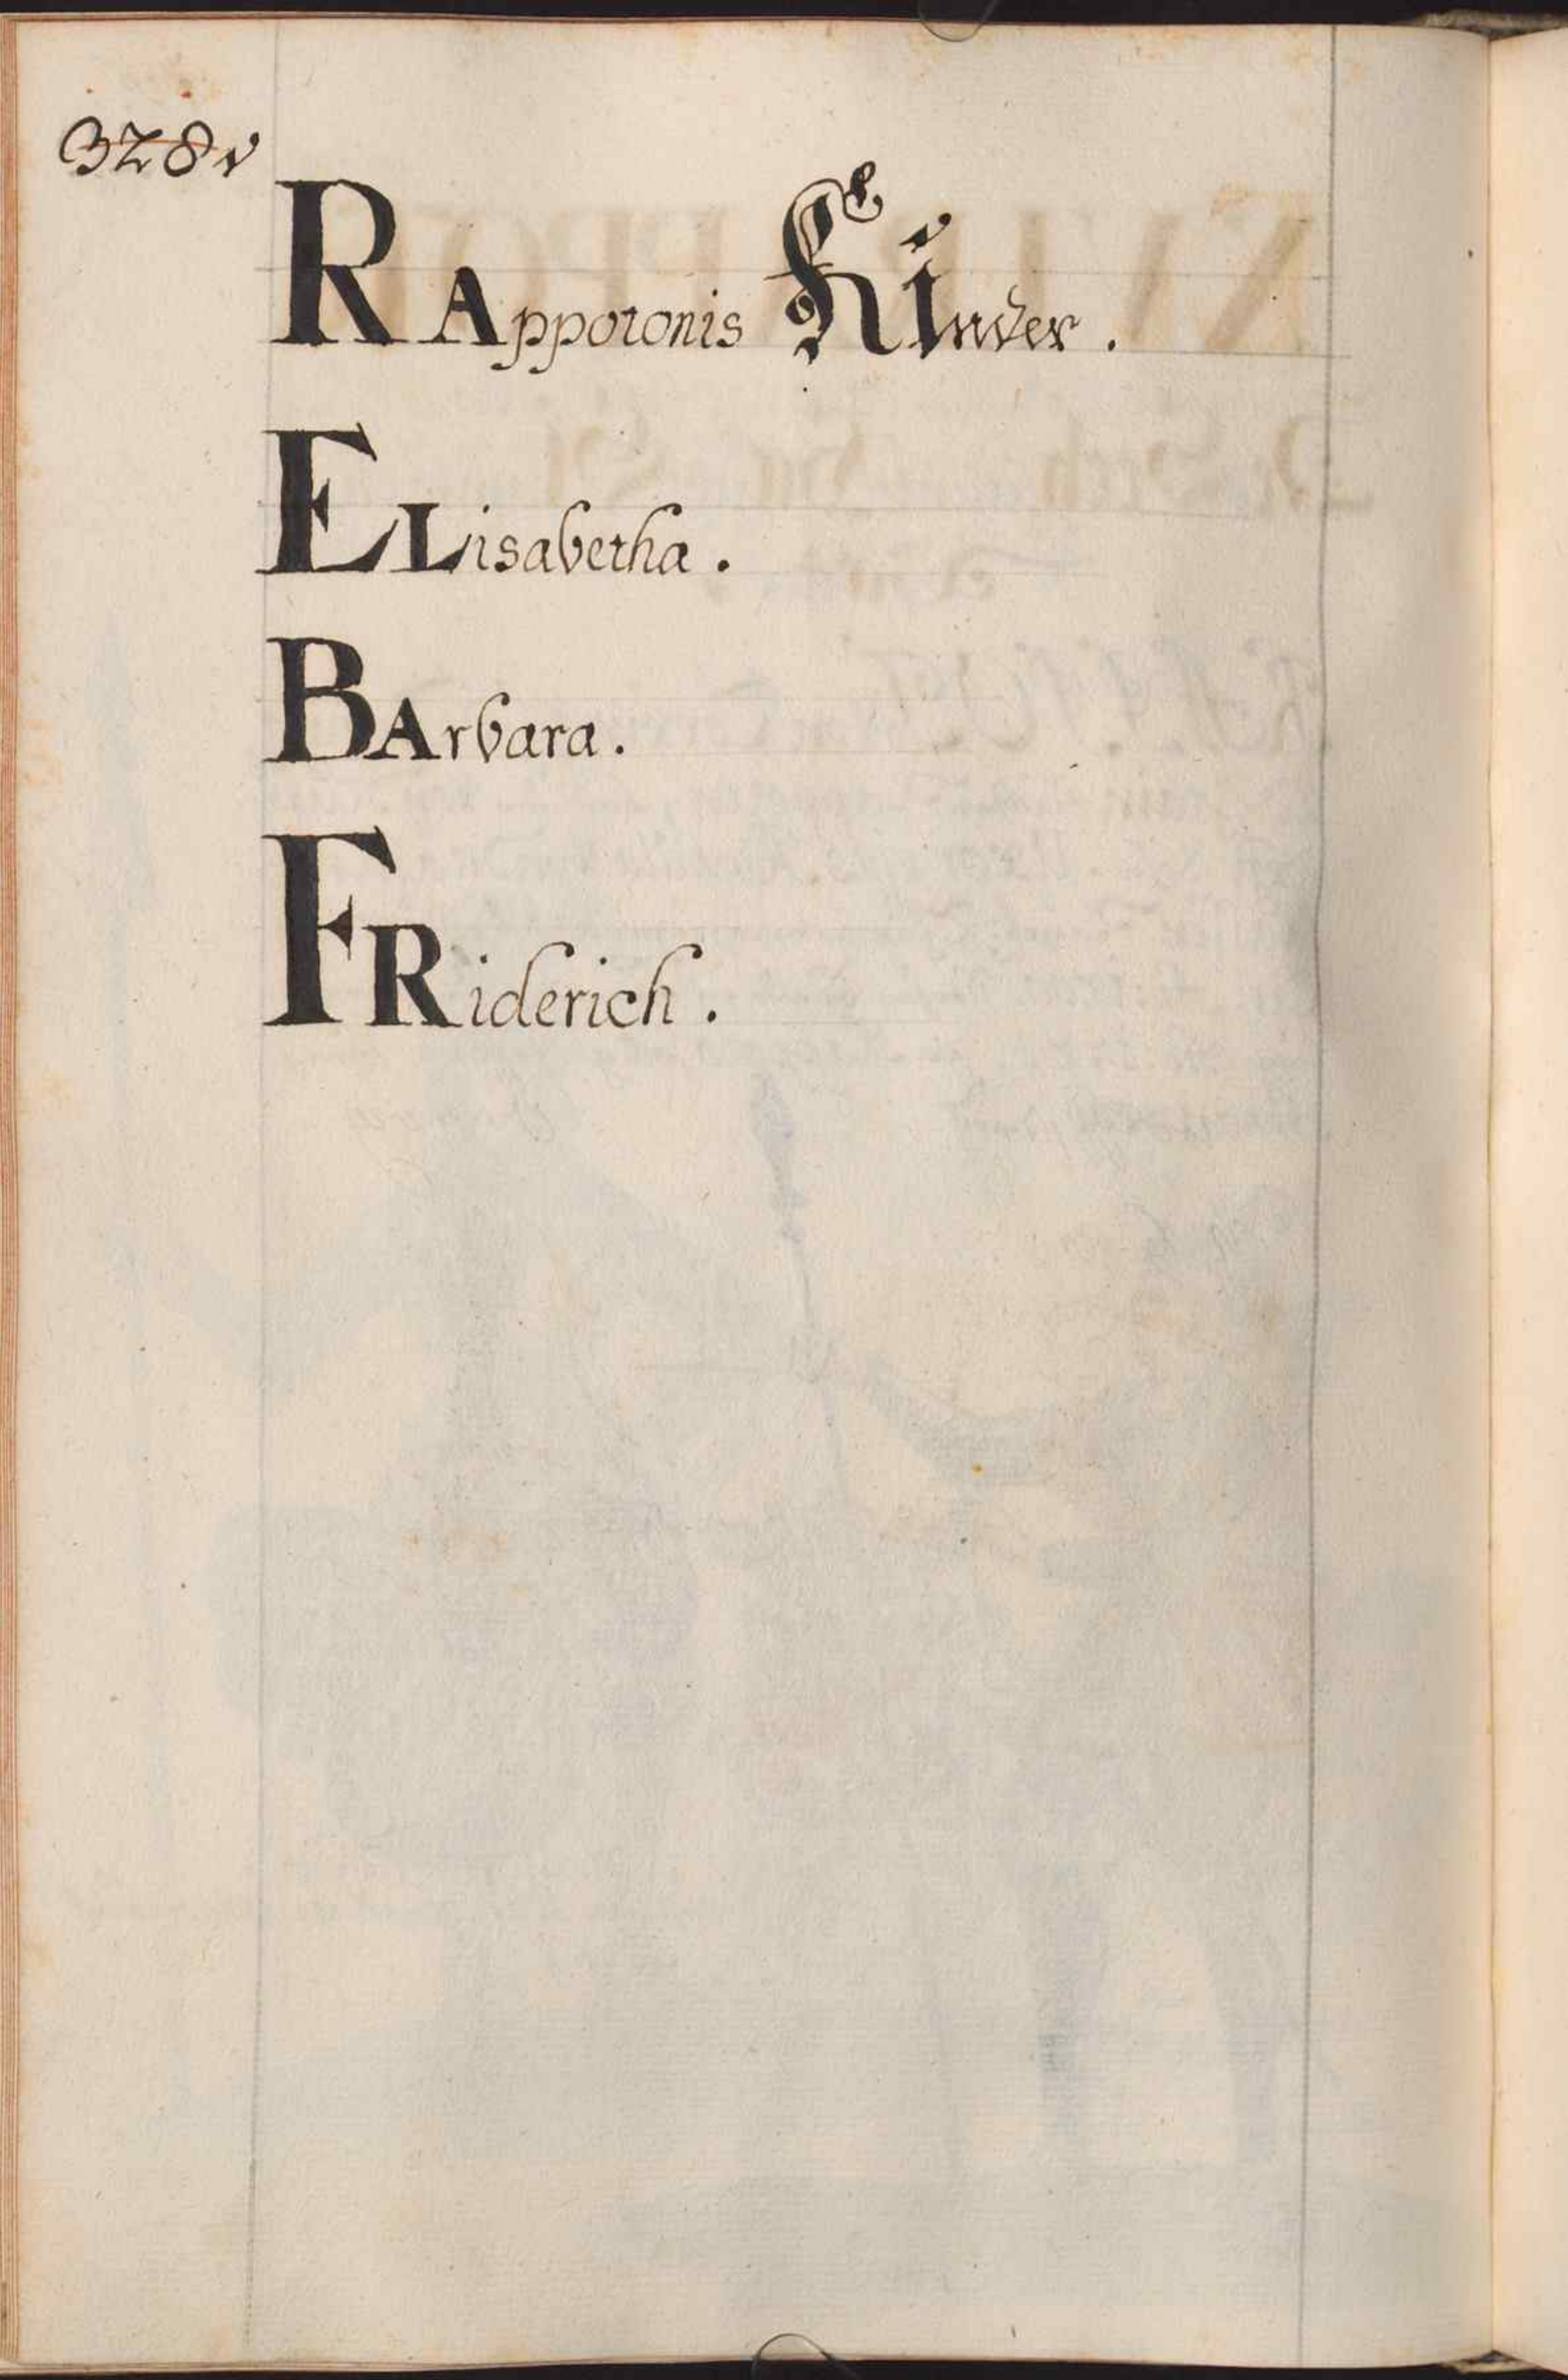 328v
RAppotonis Kinder.
ELisabetha.
BArbara.
FRiderich.